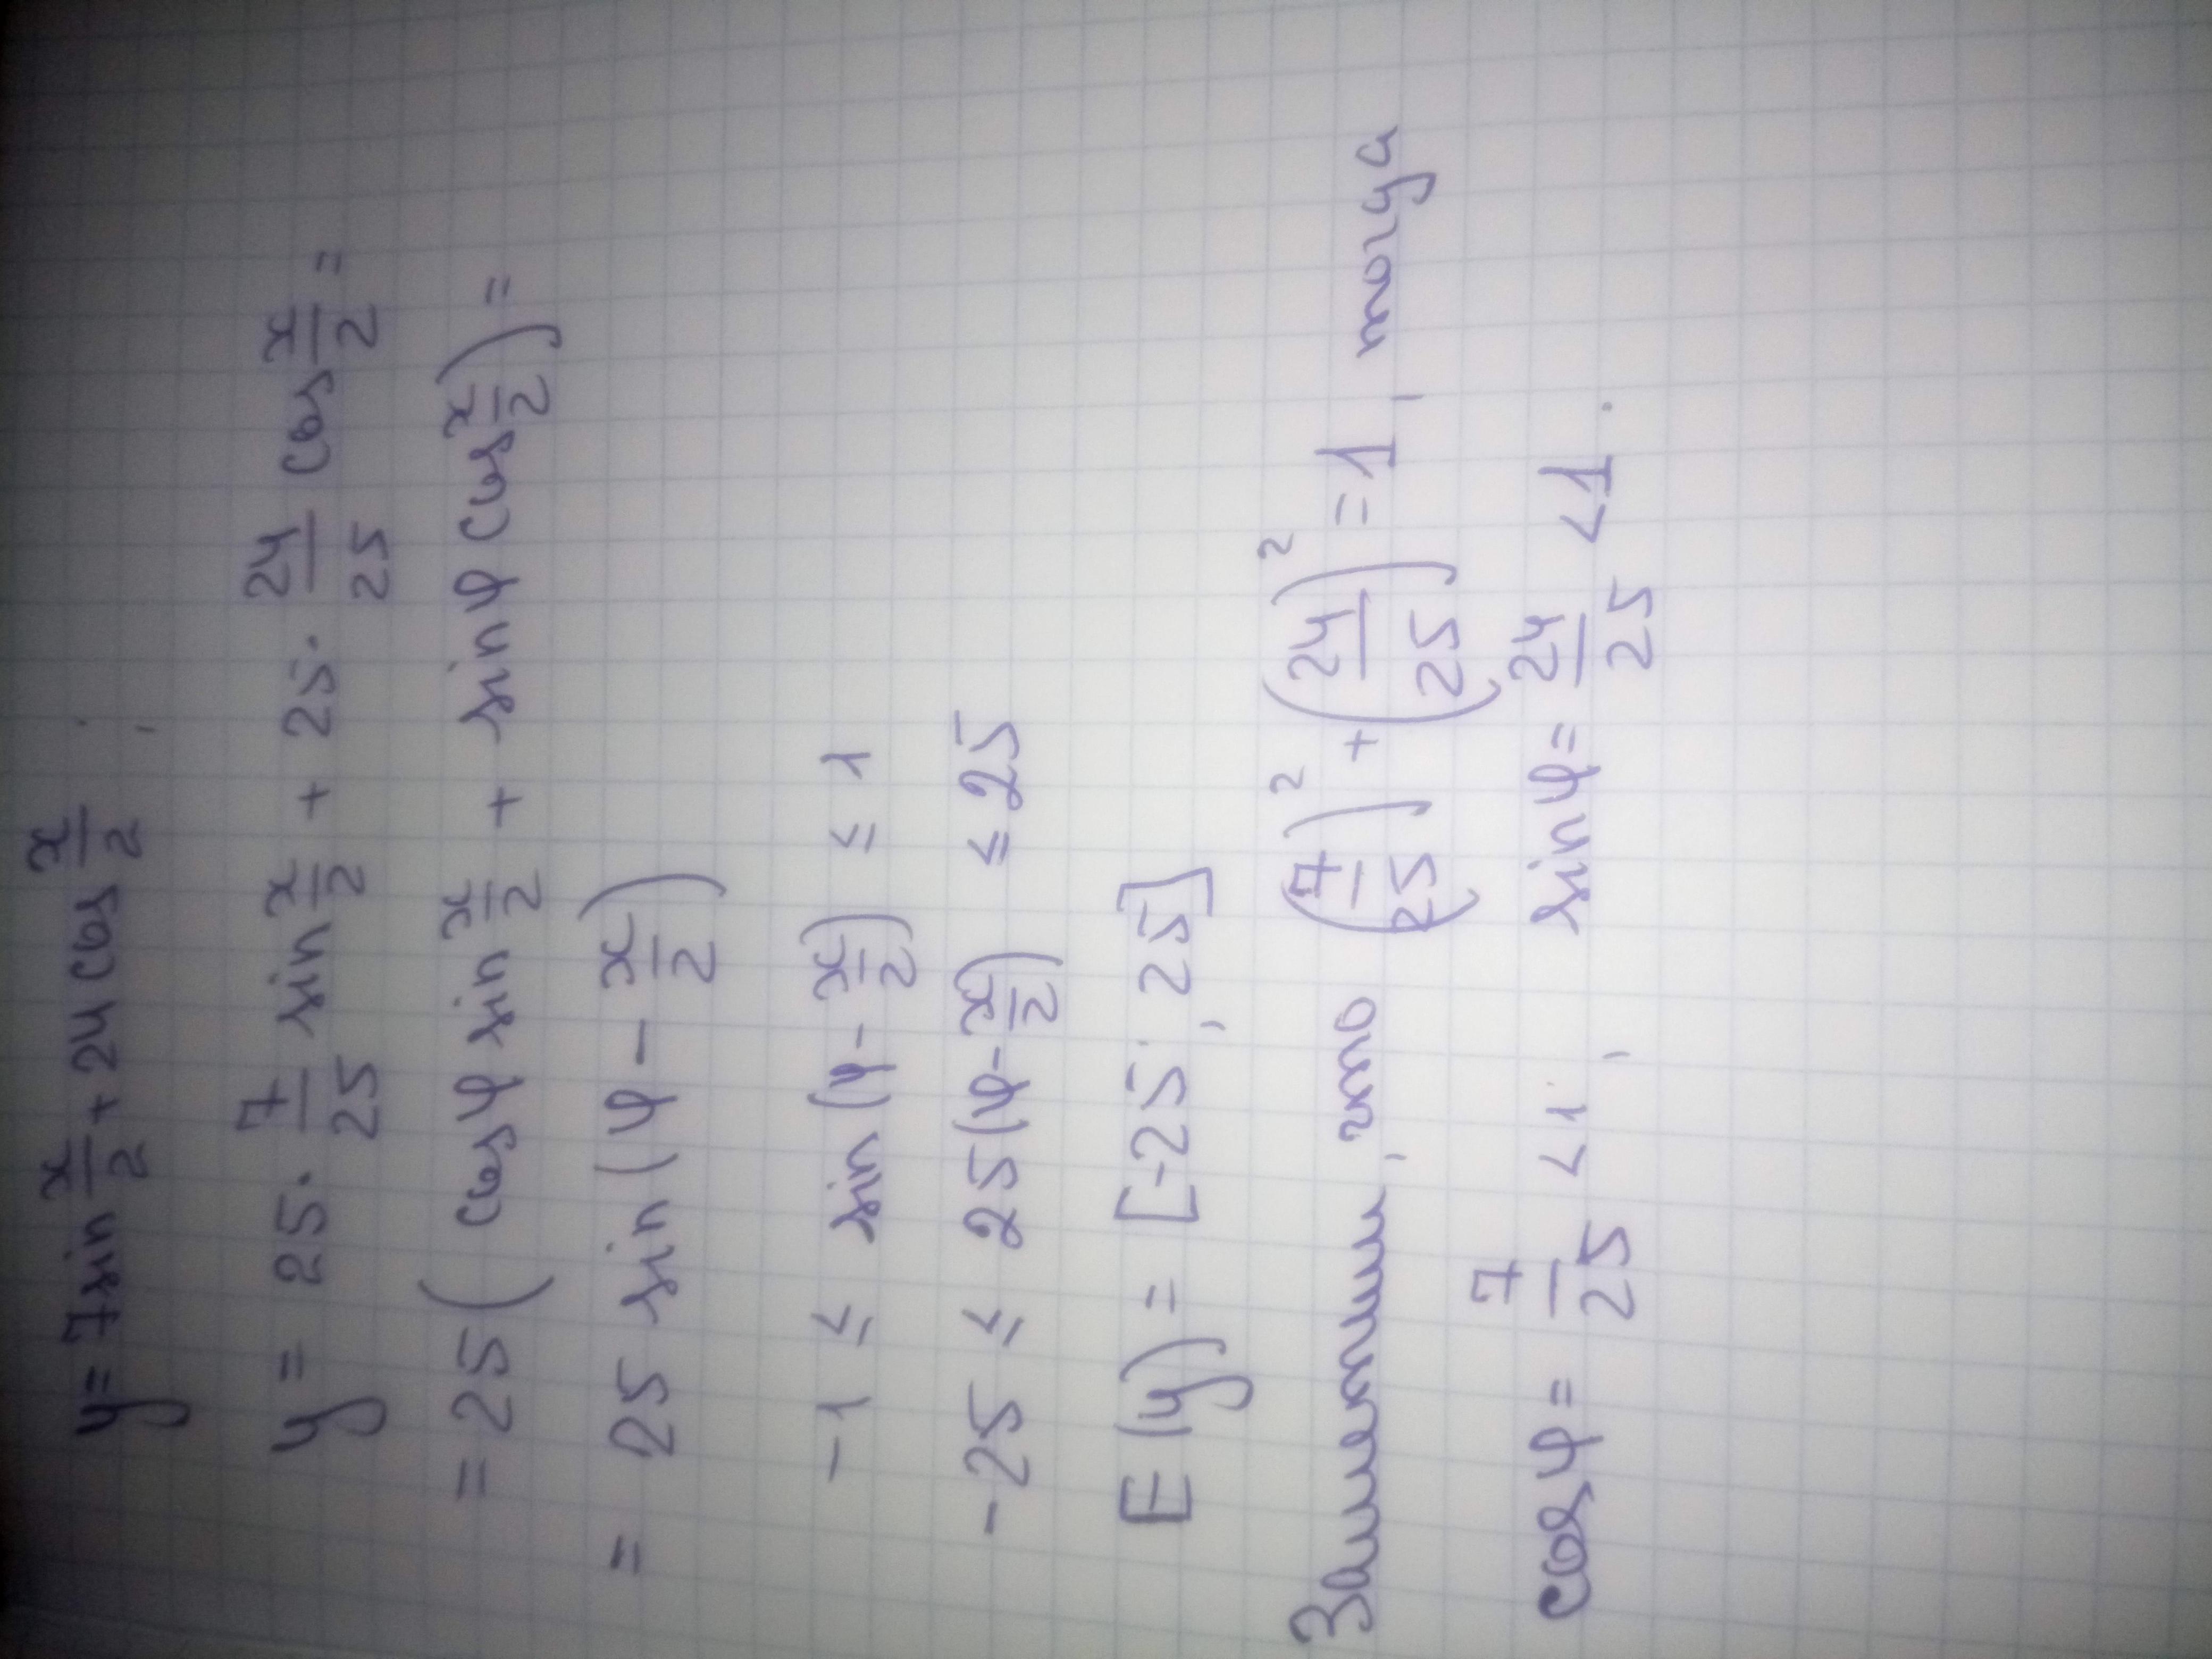 y = 7sin x/2 + 24 cos x/2 ;
y = 25 · 7/25 sin x/2 + 25 · 24/25 cos x/2 =
= 25 ( cos φ sin x/2 + sin φ cos x/2 ) =
= 25 sin ( φ - x/2 )
-1 ≤ sin ( φ - x/2 ) ≤ 1
-25 ≤ 25 ( φ - x/2 ) ≤ 25
E (y) = [-25; 25]
Заметим, что (7/25)² + (24/25)² = 1, тогда
cos φ = 7/25 < 1; sin φ = 24/25 < 1.